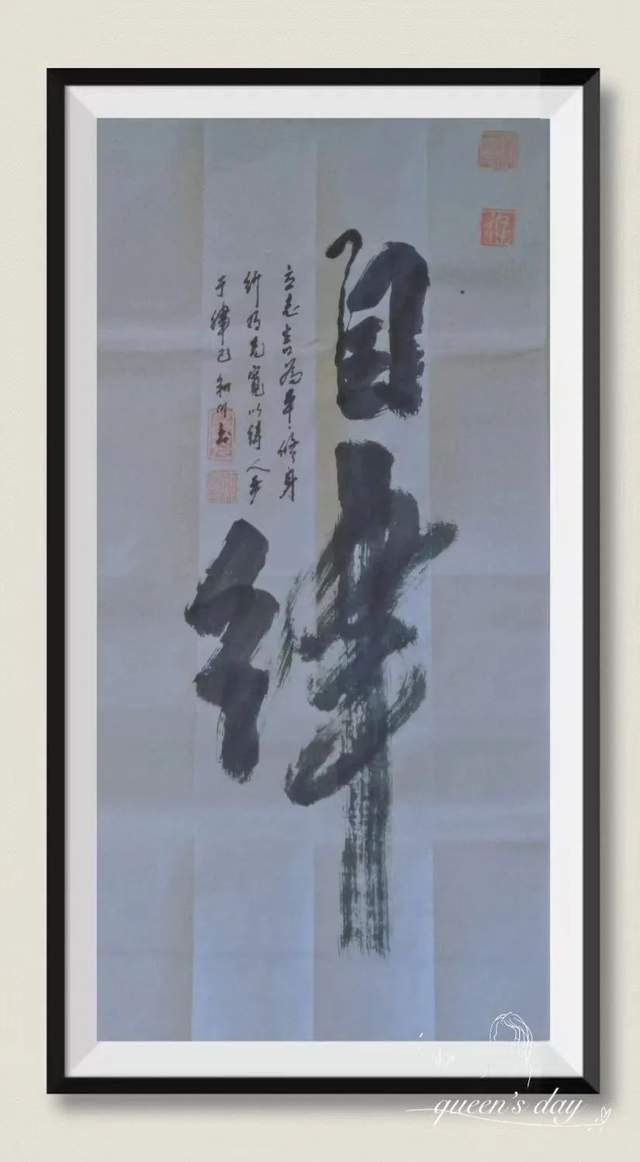 自律
立志言為本修身
行乃先寬以待人嚴
于律己
queen's day